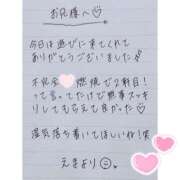 お兄様へ♡
今日は遊びに来てくれて
ありがとうございました
不完全燃焼で2回目!
って言ってたけど無事スッキ
リしてもらえて良かった♡
湿気落ち着いてほしいね!笑
えまより